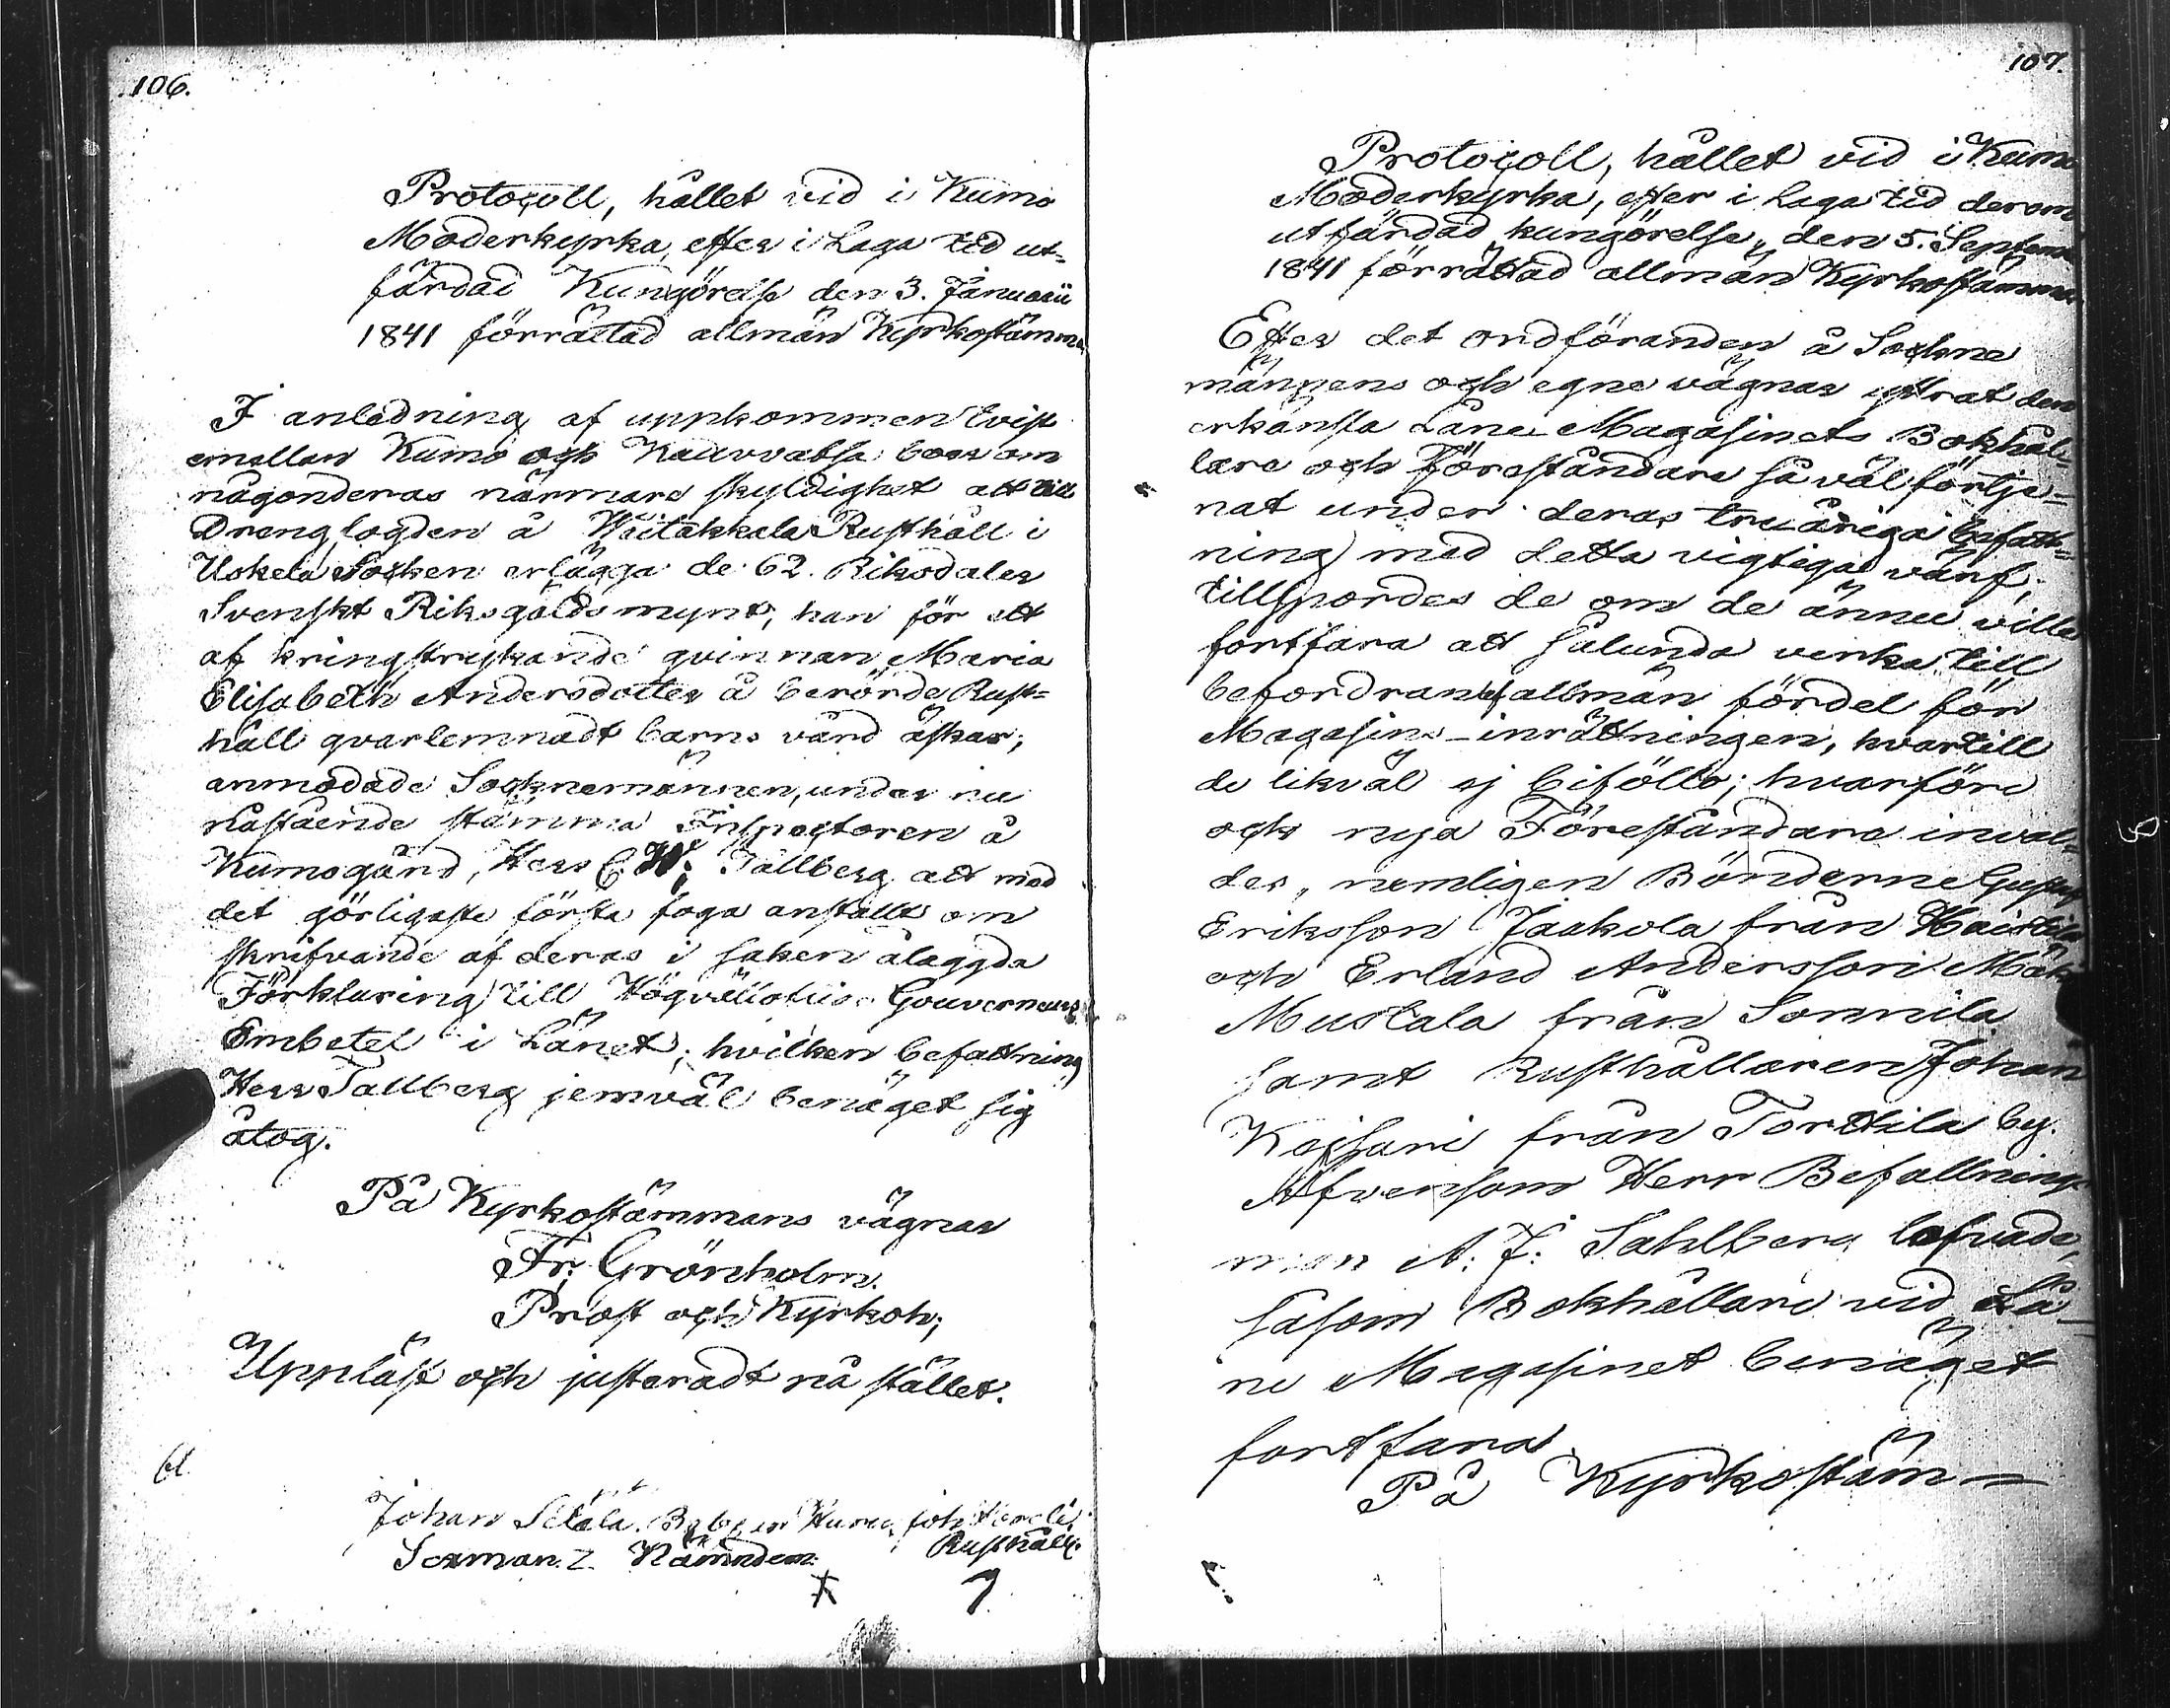 106.
Protocoll, hållet vid i Kumo
Moderkyrka, efter i Laga tid ut-
färdad Kungörelse den 3. Januarii
1841 förrättad allmän Kyrkostämma
I anledning af uppkommen tvist
emellan Kumo och Kauvvatsa boer om
någonderas närmare skyldighet att till
Drenglogden å Waitakkala Rusthåll i
Uskela Socken erlägga de 62. Riksdaler
Svenskt Riksgälds mynt, han för ett
af kringstrykande qvinnan Maria
Elisabeth Andersdotter å berörde Rust-
håll qvarlemnadt barns vård äskar;
anmodade Socknemännen, under nu
påstående stämma Inspectoren å
Kumogård, Herr C. W. Tallberg att med
det görligaste första foga anstallt om
skrifvande af deras i saken ålaggda
Förklaring till Högvällofliga Gouverneurs
Embetet i Länet; hvilken befattning
Herr Tallberg jemväl benäget sig
åtog.
På Kyrkostämmans vägnar
Fr: Grönholm.
Prost och Kyrkoh;
Uppläst och justeradt på stället.
Johan Seläla.
Sexman. Nämndem: Rusthåll:
107.
Protocoll, hållet vid i Kumo
Moderkyrka, efter i Laga tid derom
utfärdad kungörelse, den 5. Septem
1841 förrättad allmän Kyrkostämma
Efter det ordföranden å Sockne
männens och egne vägnar yttrat den
erkänsla Låne Magasinets Bokhål-
lare och Föreståndare så väl förtje-
nat under deras treåriga befatt-
ning med detta vigtiga värf,
tillspordes de om de ännu ville
fortfara att sålunda verka till
befordran af allmän fördel för
Magasins-inrättningen, hvartill
de likväl ej biföllo; hvarföre
och nya Föreståndare inval-
des, nemligen Bönderne Gustaf
Eriksson Jaakola från Haistila
och Erland Andersson
Mustala från Sonnila
samt Rusthållaren Johan
Koisari från Torttila by.
Äfvensom Herr Befallnings
man A. J. Sahlberg lofvade,
såsom Bokhållare vid Lå-
ne Magasinet benäget
fortfara
På Kyrkostäm-